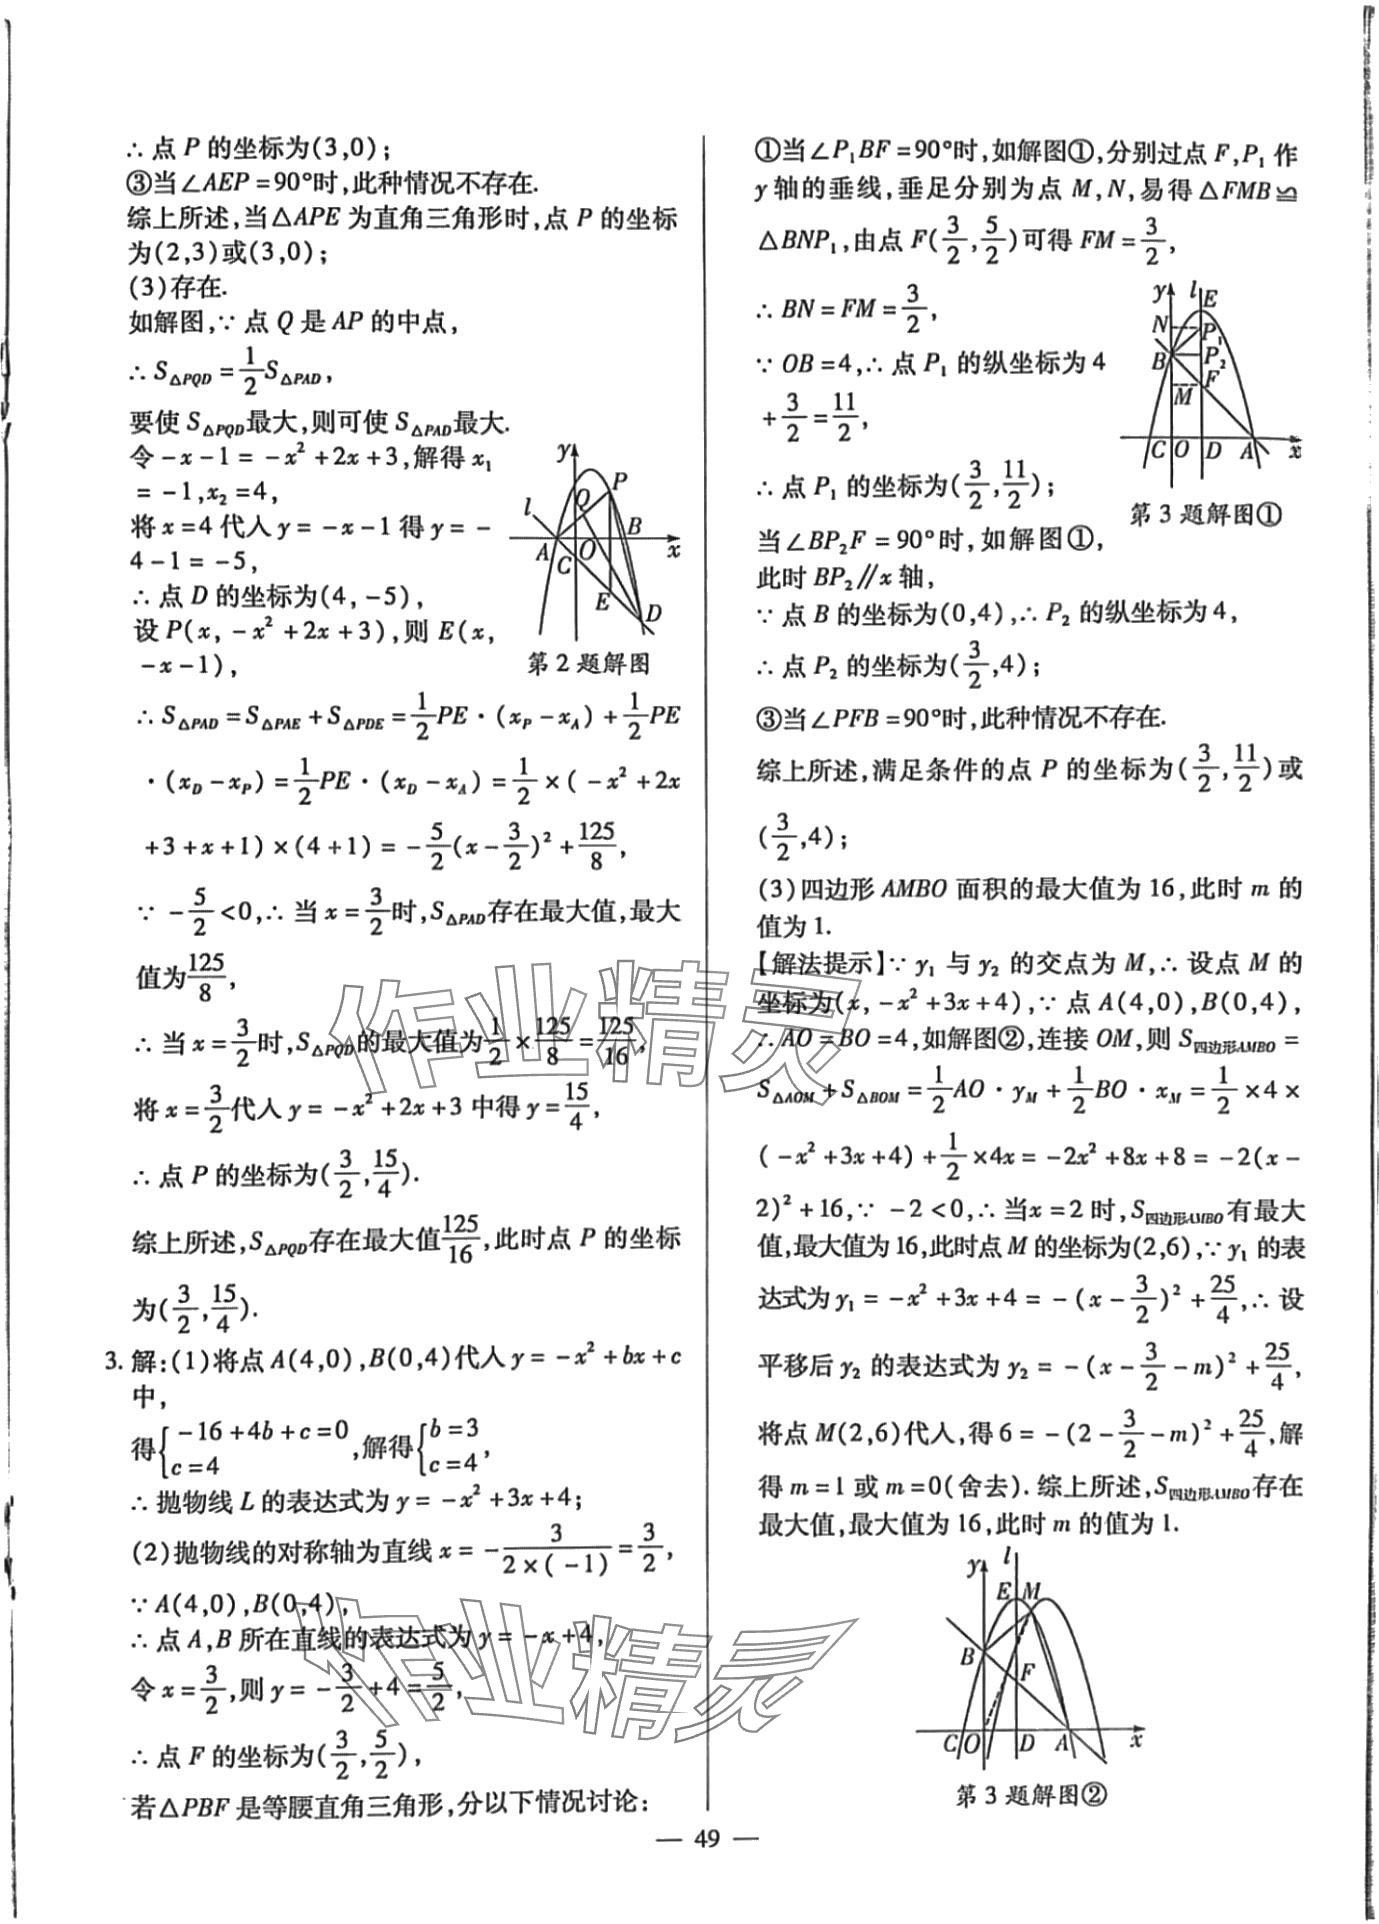 ∴点 P 的坐标为(3,0);
③当∠AEP=90°时,此种情况不存在.
综上所述,当△APE 为直角三角形时,点 P 的坐标
为(2,3)或(3,0);
(3)存在.
如解图,∵点 Q 是 AP 的中点,
∴S△PQD=1/2S△PAD,
要使 S△PQD最大,则可使 S△PAD最大.
令-x-1=-x²+2x+3,解得 x₁
=-1,x₂=4,
将 x=4 代人 y=-x-1 得 y=-
4-1=-5,
∴点 D 的坐标为(4,-5),
设 P(x,-x²+2x+3),则 E(x,
-x-1),
y
P
Q
l
B
A
O
x
C
E
D
第 2 题解图
∴S△PAD=S△PAE+S△PDE=1/2PE·(xP-xA)+1/2PE
·(xD-xP)=1/2PE·(xD-xA)=1/2×(-x²+2x
+3+x+1)×(4+1)=-5/2(x-3/2)²+125/8,
∵-5/2<0,∴当 x=3/2时,S△PAD存在最大值,最大
值为125/8,
∴当 x=3/2时,S△PQD的最大值为1/2×125/8=125/16,
将 x=3/2代人 y=-x²+2x+3 中得 y=15/4,
∴点 P 的坐标为(3/2,15/4).
综上所述,S△PQD存在最大值125/16,此时点 P 的坐标
为(3/2,15/4).
3. 解:(1)将点 A(4,0),B(0,4)代人 y=-x²+bx+c
中,
得{-16+4b+c=0 c=4,解得{b=3 c=4,
∴抛物线 L 的表达式为 y=-x²+3x+4;
(2)抛物线的对称轴为直线 x=-3/(2×(-1))=3/2,
∵A(4,0),B(0,4),
∴点 A,B 所在直线的表达式为 y=-x+4,
令 x=3/2,则 y=-3/2+4=5/2,
∴点 F 的坐标为(3/2,5/2),
若△PBF 是等腰直角三角形,分以下情况讨论:
①当∠P₁BF=90°时,如解图①,分别过点 F,P₁ 作
y 轴的垂线,垂足分别为点 M,N,易得△FMB≌
△BNP₁,由点 F(3/2,5/2)可得 FM=3/2,
∴BN=FM=3/2,
∵OB=4,∴点 P₁ 的纵坐标为 4
+3/2=11/2,
∴点 P₁ 的坐标为(3/2,11/2);
当∠BP₂F=90°时,如解图①,
此时 BP₂∥x 轴,
y
l
E
N
P₁
B
P₂
M
F
C
O
D
A
x
第 3 题解图①
∵点 B 的坐标为(0,4),∴P₂ 的纵坐标为 4,
∴点 P₂ 的坐标为(3/2,4);
③当∠PFB=90°时,此种情况不存在.
综上所述,满足条件的点 P 的坐标为(3/2,11/2)或
(3/2,4);
(3)四边形 AMBO 面积的最大值为 16,此时 m 的
值为 1.
【解法提示】∵y₁ 与 y₂ 的交点为 M,∴设点 M 的
坐标为(x,-x²+3x+4),∵点 A(4,0),B(0,4),
∴AO=BO=4,如解图②,连接 OM,则 S四边形AMBO=
S△AOM+S△BOM=1/2AO·yM+1/2BO·xM=1/2×4×
(-x²+3x+4)+1/2×4x=-2x²+8x+8=-2(x-
2)²+16,∵-2<0,∴当x=2时,S四边形AMBO有最大
值,最大值为16,此时点 M 的坐标为(2,6),∵y₁ 的表
达式为 y₁=-x²+3x+4=-(x-3/2)²+25/4,∴设
平移后 y₂ 的表达式为 y₂=-(x-3/2-m)²+25/4,
将点 M(2,6)代人,得 6=-(2-3/2-m)²+25/4,解
得 m=1 或 m=0(舍去).综上所述,S四边形AMBO存在
最大值,最大值为 16,此时 m 的值为 1.
y
l
E
M
B
F
C
O
D
A
x
第 3 题解图②
— 49 —
作业精灵
作业精灵